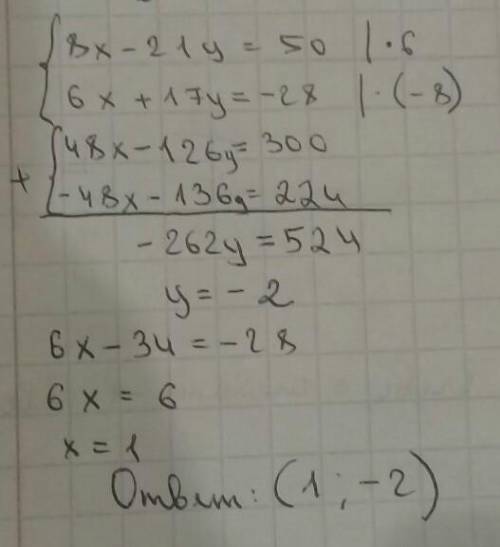 8x - 21y = 50 | · 6
6x + 17y = -28 | · (-8)
48x - 126y = 300
+ -48x - 136y = 224
-262y = 524
y = -2
6x - 34 = -28
6x = 6
x = 1
Ответ: (1 ; -2)